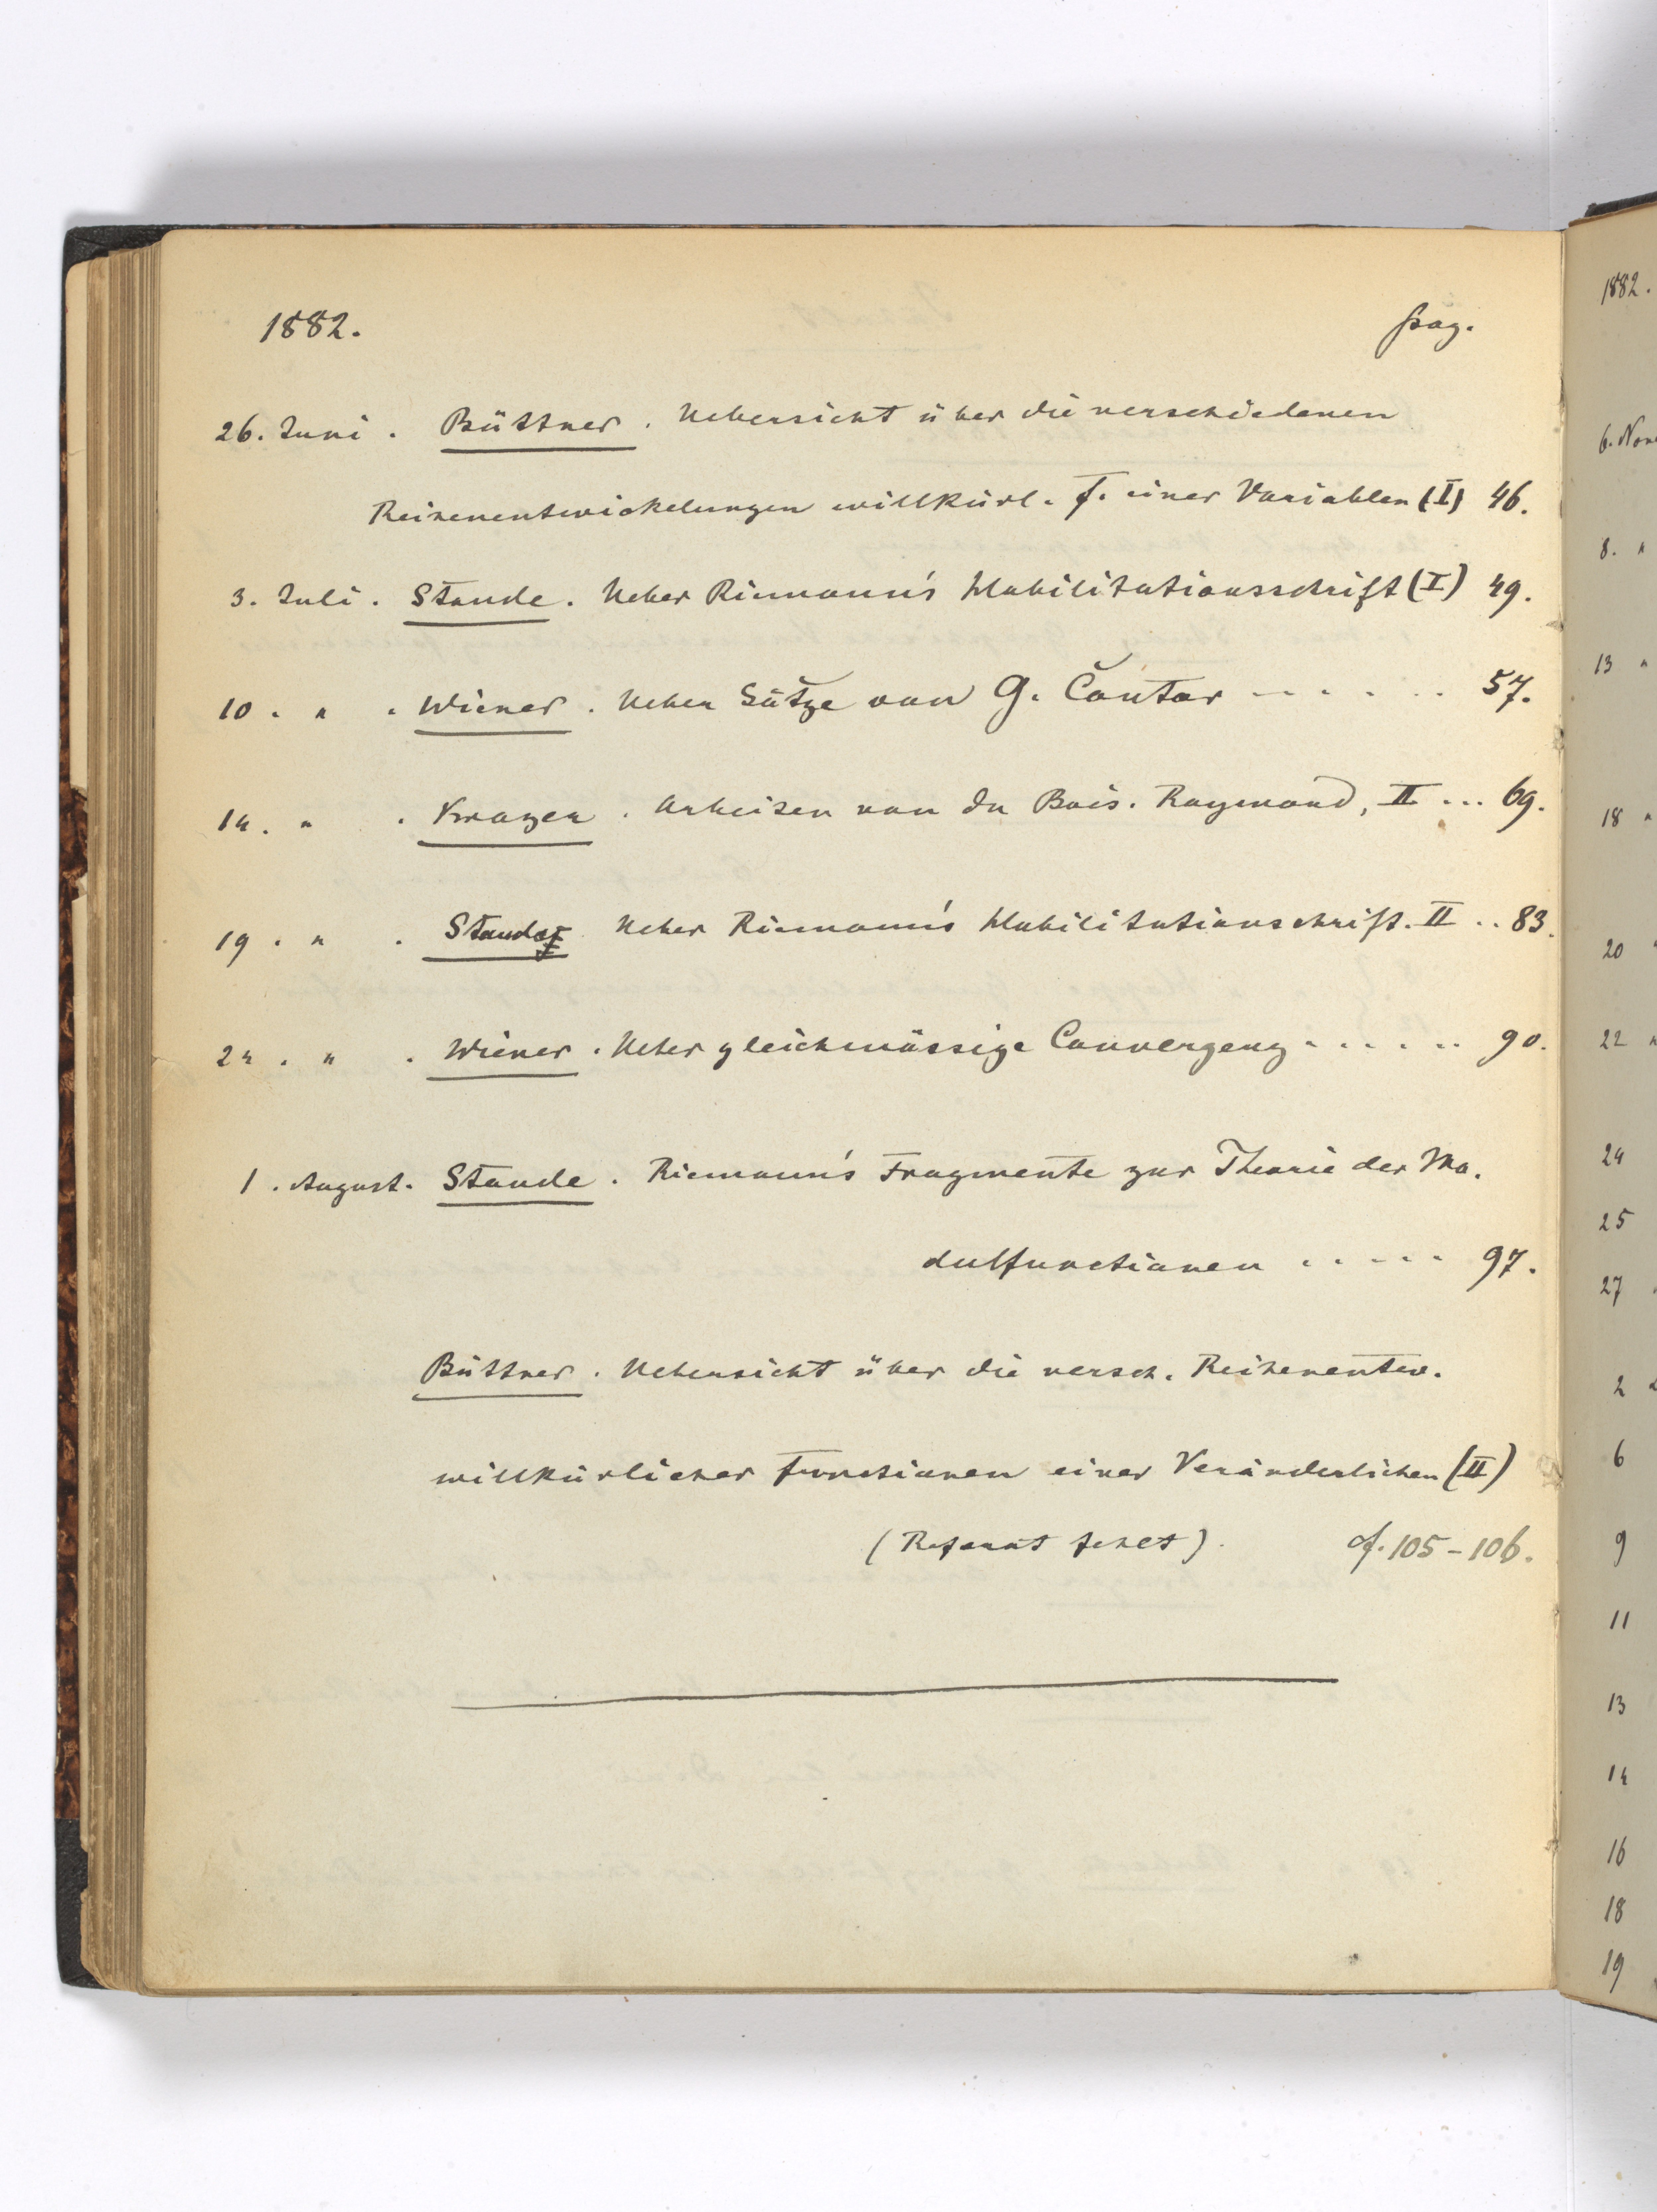 1882. pag.
26. Juni. Büttner. Uebersicht über die verschiedenen
Reihenentwickelungen willkürl. f. einer Variablen (I) 46.
3. Juli. Staude. Ueber Riemann's Habilitationsschrift (I) 49.
10. " . Wiener. Ueber Sätze von G. Cantor - - . . . . 57.
14. " . Krazer. Arbeiten von Du Bois-Reymond, II ... 69.
19. " . Staude Ueber Riemann's Habilitationschrift. II .. 83.
24. " . Wiener. Ueber gleichmässige Convergenz . . . . .. 90.
1. August. Staude. Riemann's Fragmente zur Theorie der Mo-
dulfunctionen . . . . . 97.
Büttner. Uebersicht über die versch. Reihenentw.
willkürlicher Functionen einer Veränderlichen (II)
(Referat fehlt). cf. 105-106.
1882.
6. Nov
8. "
13 "
18 "
20 "
22 "
24
25
27
2
6
9
11
13
14
16
18
19